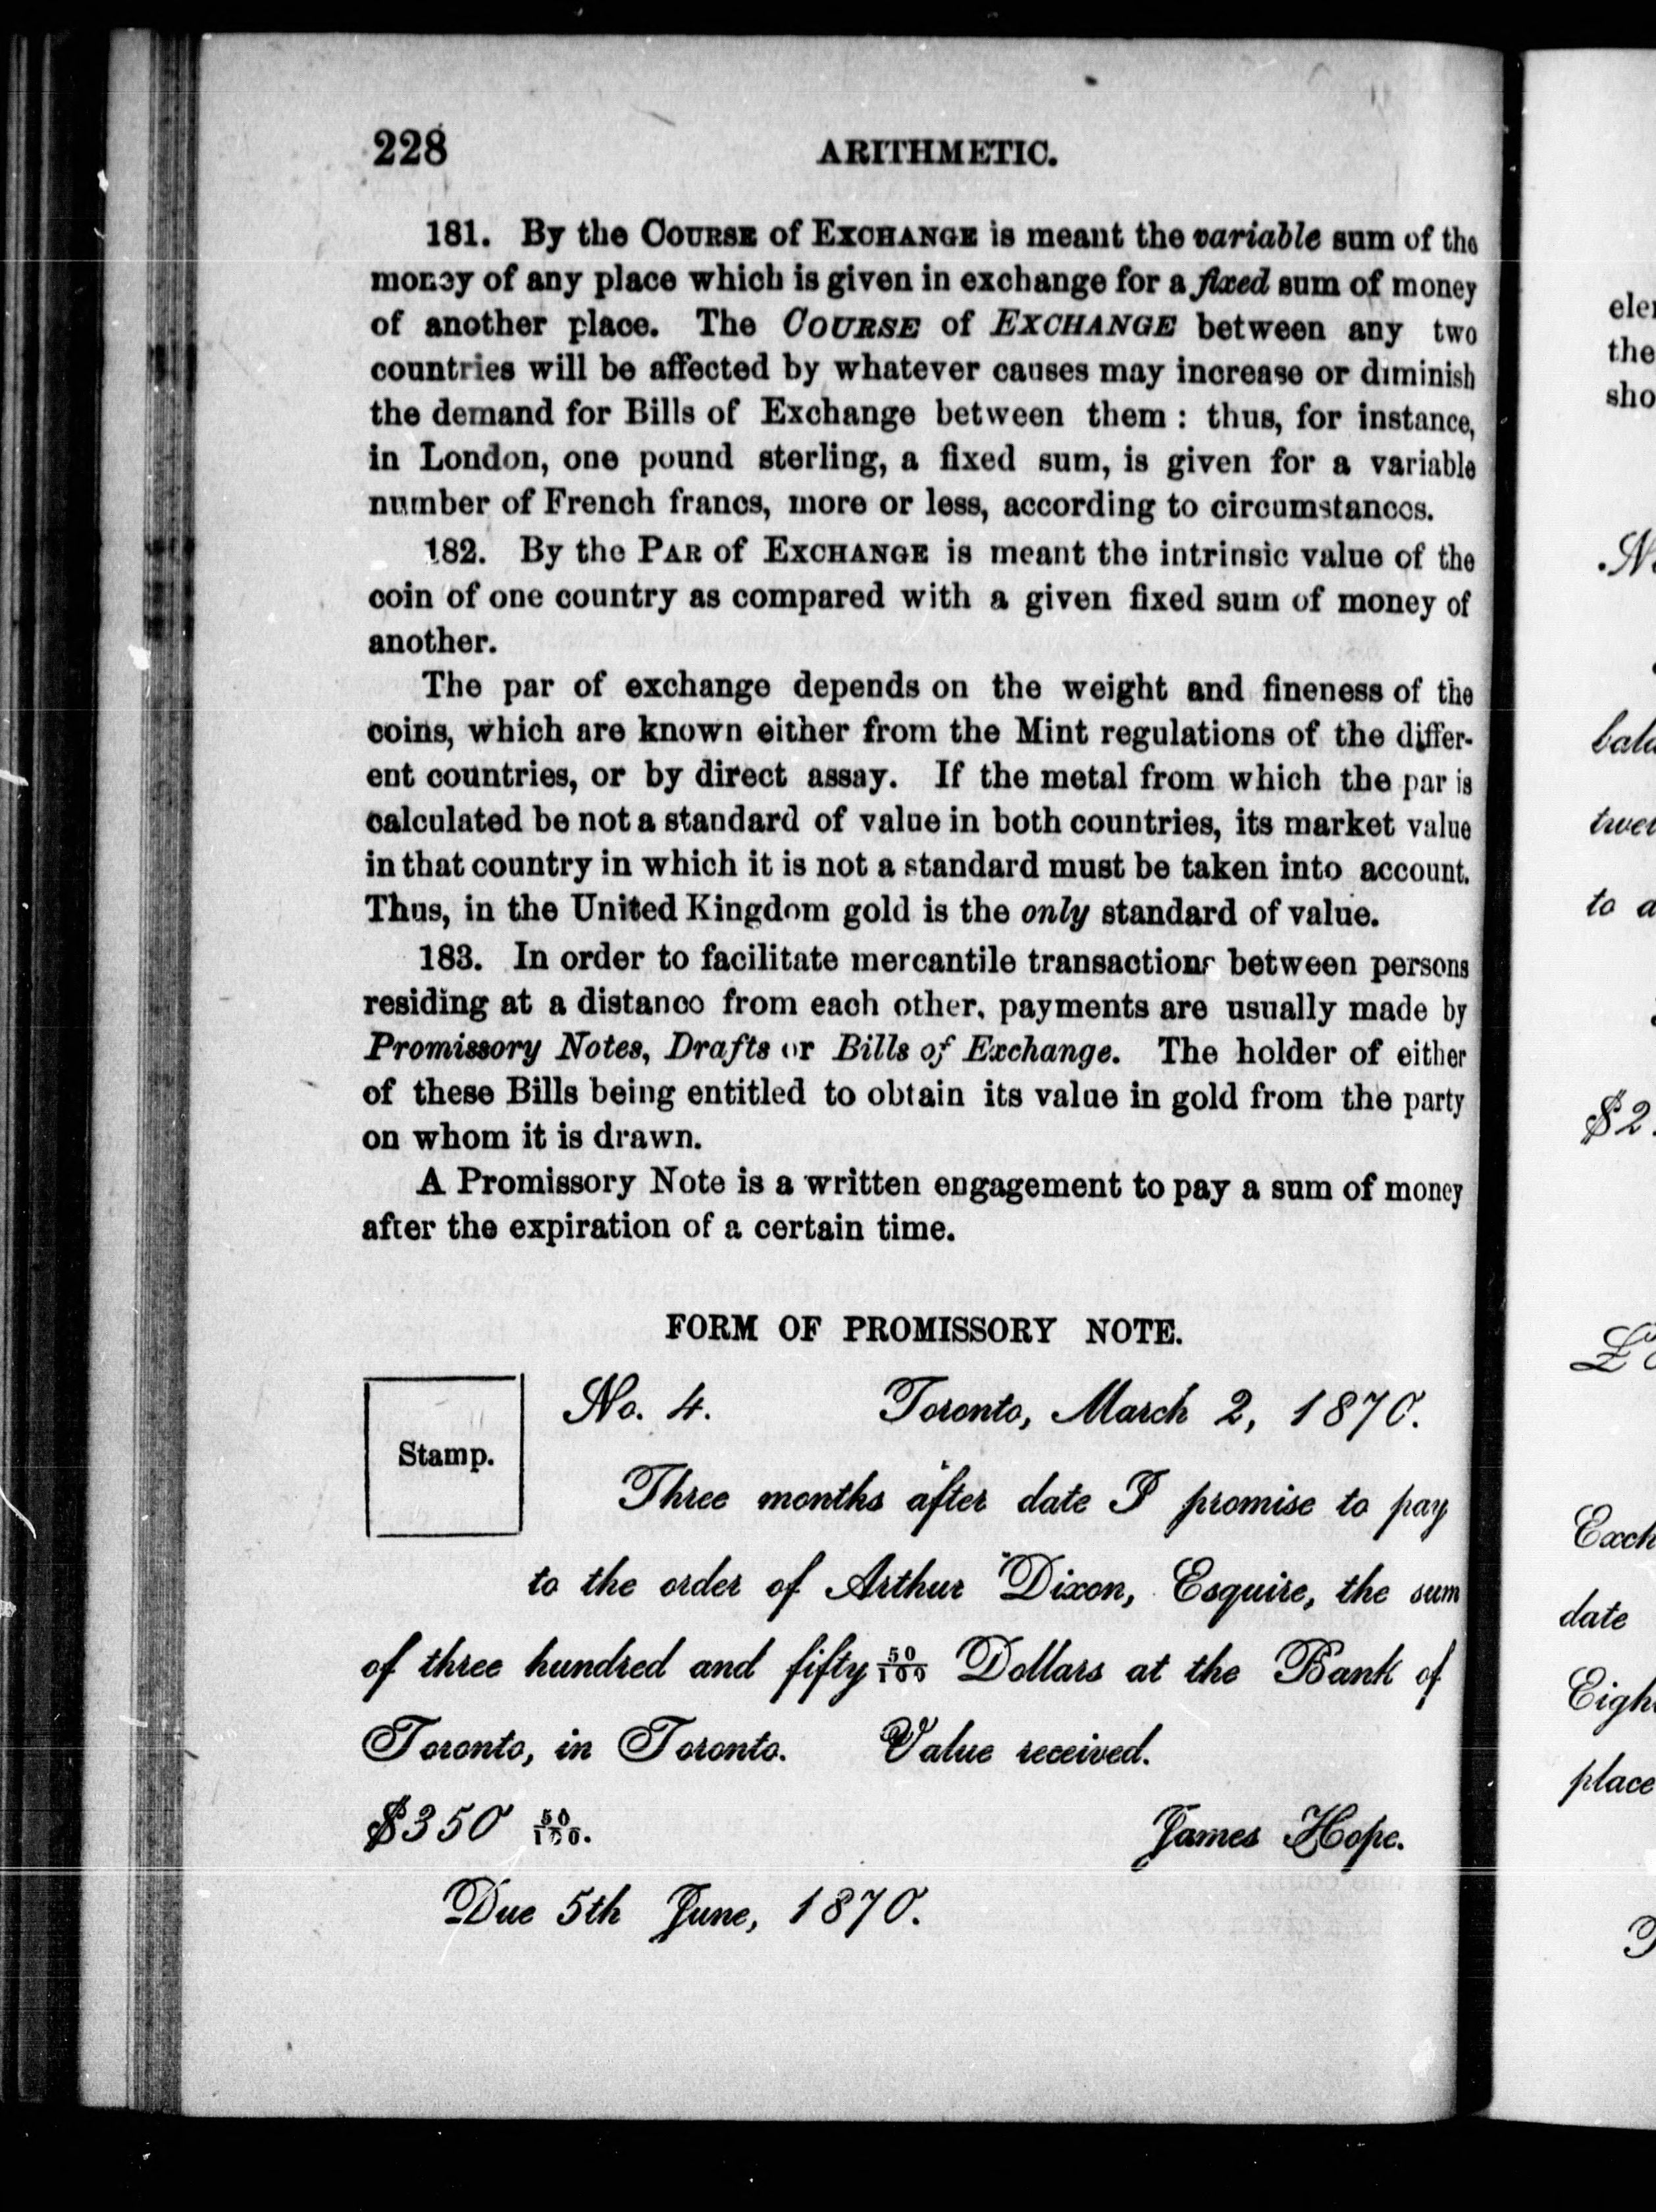 228 ARITHMETIC.
181. By the COURSE of EXCHANGE is meant the variable sum of the
money of any place which is given in exchange for a fixed sum of money
of another place. The COURSE of EXCHANGE between any two
countries will be affected by whatever causes may increase or diminish
the demand for Bills of Exchange between them : thus, for instance,
in London, one pound sterling, a fixed sum, is given for a variable
number of French francs, more or less, according to circumstances.
182. By the PAR of EXCHANGE is meant the intrinsic value of the
coin of one country as compared with a given fixed sum of money of
another.
The par of exchange depends on the weight and fineness of the
coins, which are known either from the Mint regulations of the differ-
ent countries, or by direct assay. If the metal from which the par is
calculated be not a standard of value in both countries, its market value
in that country in which it is not a standard must be taken into account.
Thus, in the United Kingdom gold is the only standard of value.
183. In order to facilitate mercantile transactions between persons
residing at a distance from each other, payments are usually made by
Promissory Notes, Drafts or Bills of Exchange. The holder of either
of these Bills being entitled to obtain its value in gold from the party
on whom it is drawn.
A Promissory Note is a written engagement to pay a sum of money
after the expiration of a certain time.
FORM OF PROMISSORY NOTE.
Stamp.
No. 4. Toronto, March 2, 1870.
Three months after date I promise to pay
to the order of Arthur Dixon, Esquire, the sum
of three hundred and fifty 50/100 Dollars at the Bank of
Toronto, in Toronto. Value received.
$350 50/100. James Hope.
Due 5th June, 1870.
the
sho
to a
$2.
Exch
date
place